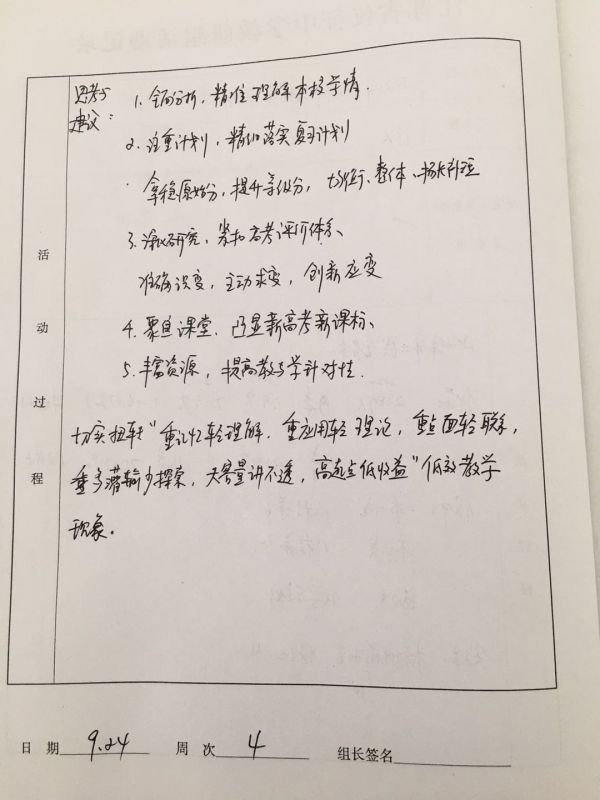 思考与
建议：
1. 全面分析，精准理解本校学情.
2. 注重计划，精细落实复习计划
拿稳原始分，提升等级分，
整体、
3. 深入研究，紧扣高考评价体系、
准确识变，主动求变，创新应变
4. 聚焦课堂. 凸显新高考新课标、
5. 丰富资源，提高教与学针对性.
切实扭转“重记忆轻理解. 重应用轻理论，重点面轻联系，
重多灌输少探索，大容量讲不透，高起点低收益”低效教学
现象.
活
动
过
程
日 期 9.24 周 次 4 组长签名